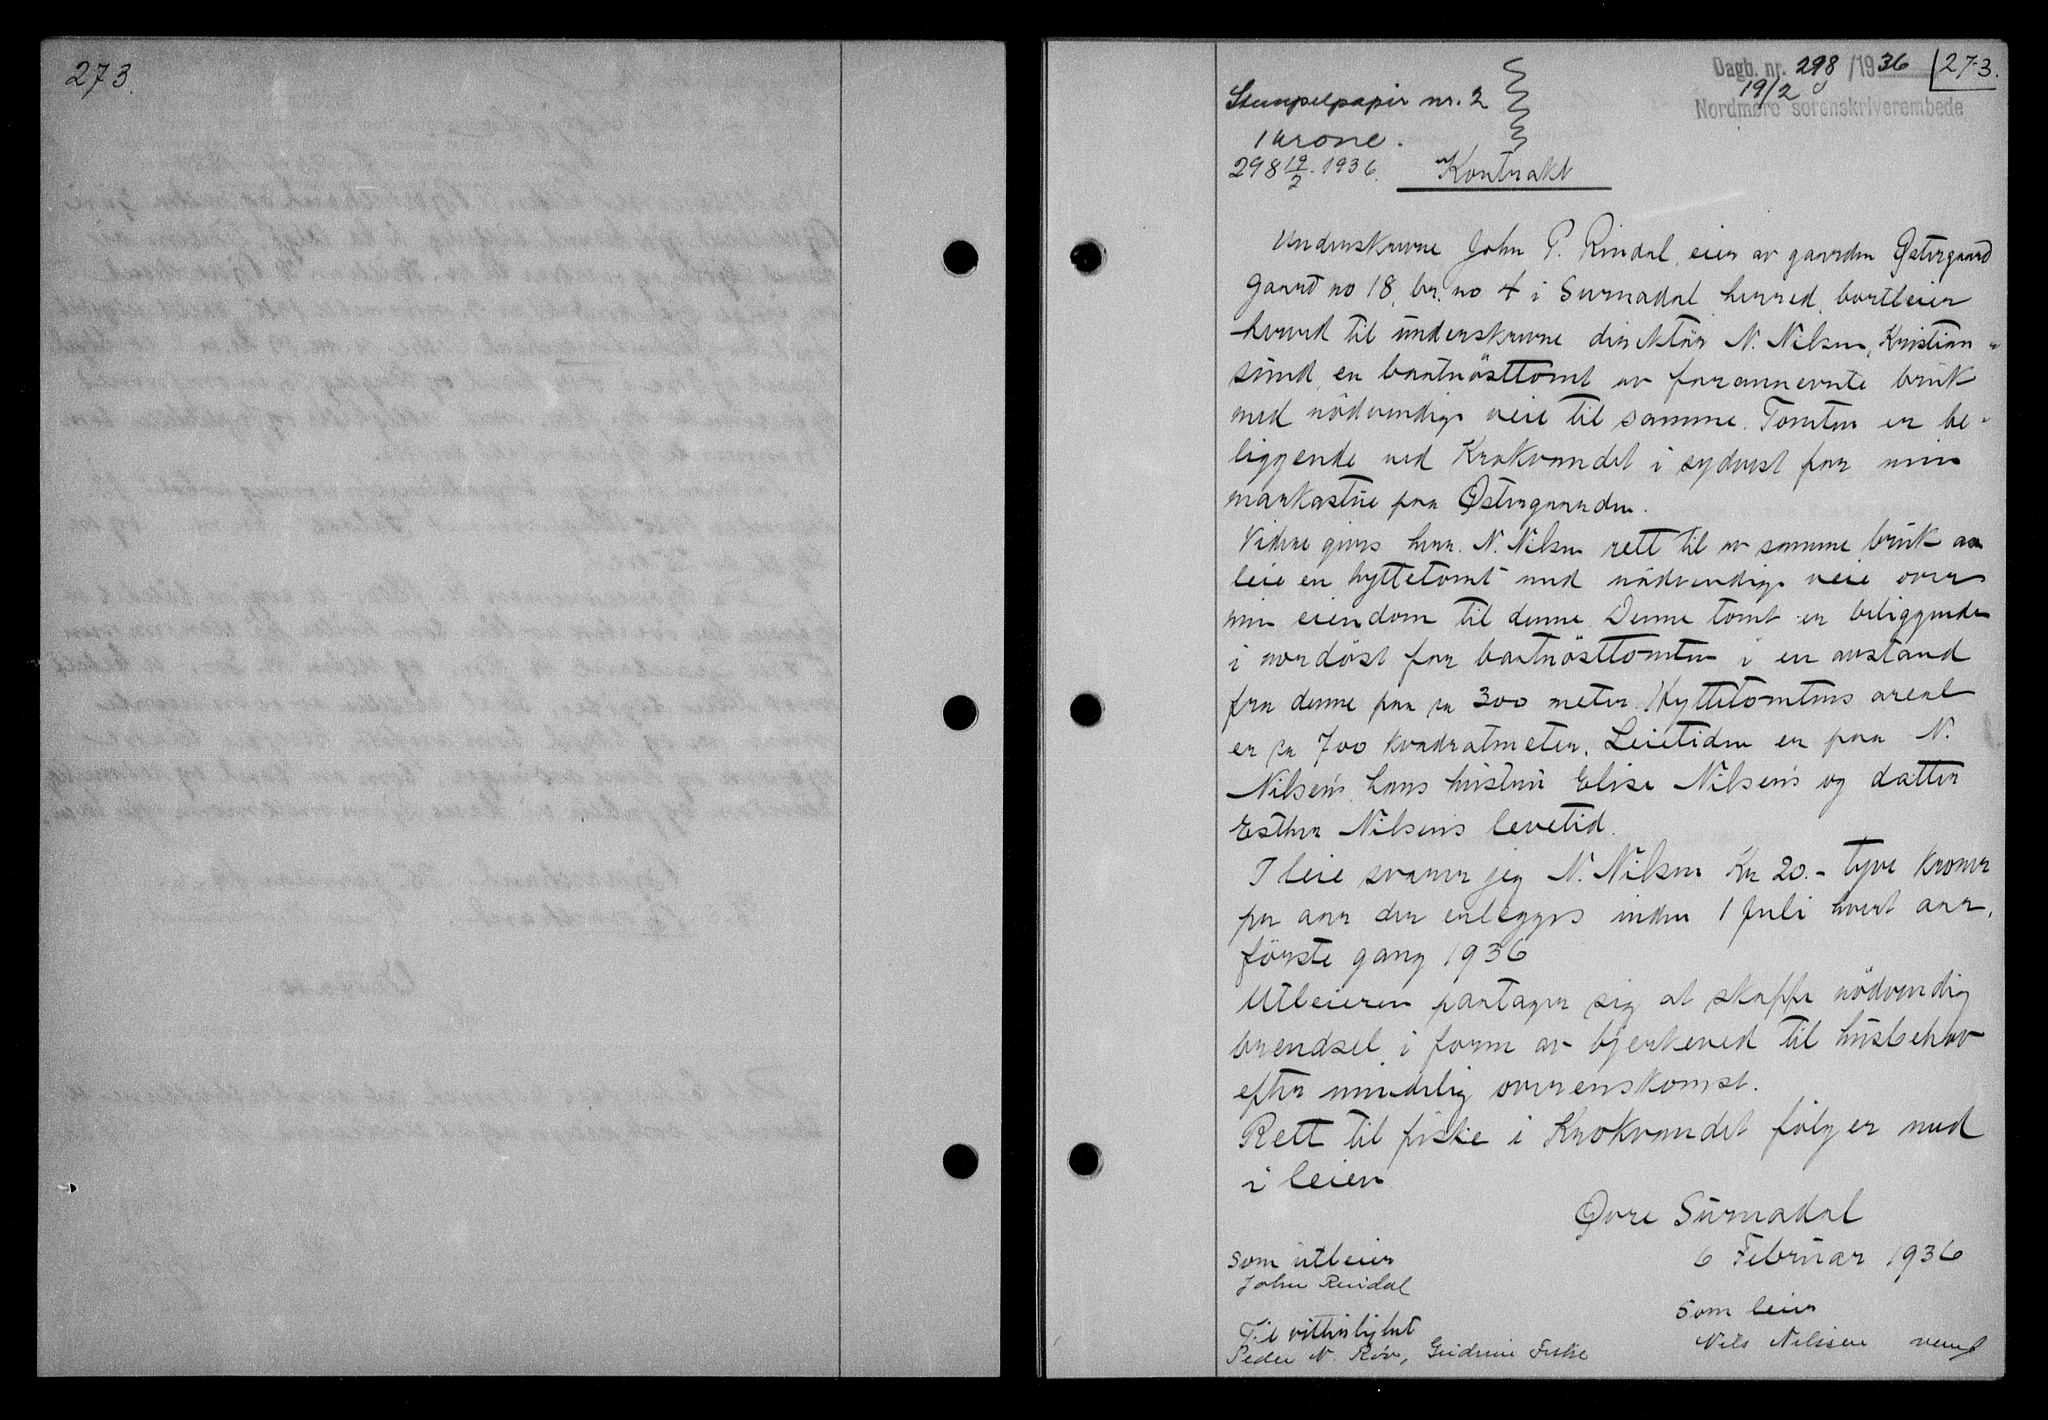 273.
Dagb. nr. 298/1936 273.
19/2
Nordmøre sorenskriverembede
Stempelpapir nr. 2
1 krone.
298 19/2. 1936.
Kontrakt
Underskrevne John P. Rindal, eier av gaarden Østergaard
Gaard no 18, br. no 4 i Surnadal herred, bortleier
herved til underskrevne direktör N. Nilsen, Kristian-
sund, en baatnösttomt av forannevnte bruk
med nödvendige veie til samme. Tomten er be-
liggende ved Krokvandet i sydvest for min
markastue paa Østergaarden.
Videre gives herr. N. Nilsen rett til av samme bruk aa
leie en hyttetomt med nödvendige veie over
min eiendom til denne. Denne tomt er beliggende
i nordöst for baatnösttomten i en avstand
fra denne paa ca 300 meter. Hyttetomtens areal
er ca 700 kvadratmeter. Leietiden er paa N.
Nilsen's, hans hustru Elise Nilsen's og datter
Esther Nilsens levetid.
I leie svarer jeg N. Nilsen Kr 20.- tyve kroner
per aar der erlegges inden 1 Juli hvert aar,
förste gang 1936
Utleieren paatager sig at skaffe nödvendig
brendsel i form av bjerkeved til husbehov
efter mindelig overenskomst.
Rett til fiske i Krokvandet fölger med
i leien
Øvre Surnadal
6 Februar 1936
som utleier
John Rindal
som leier
Nils Nilssen
Til vitterlighet
Peder N. Røv, Gudrun Fiske